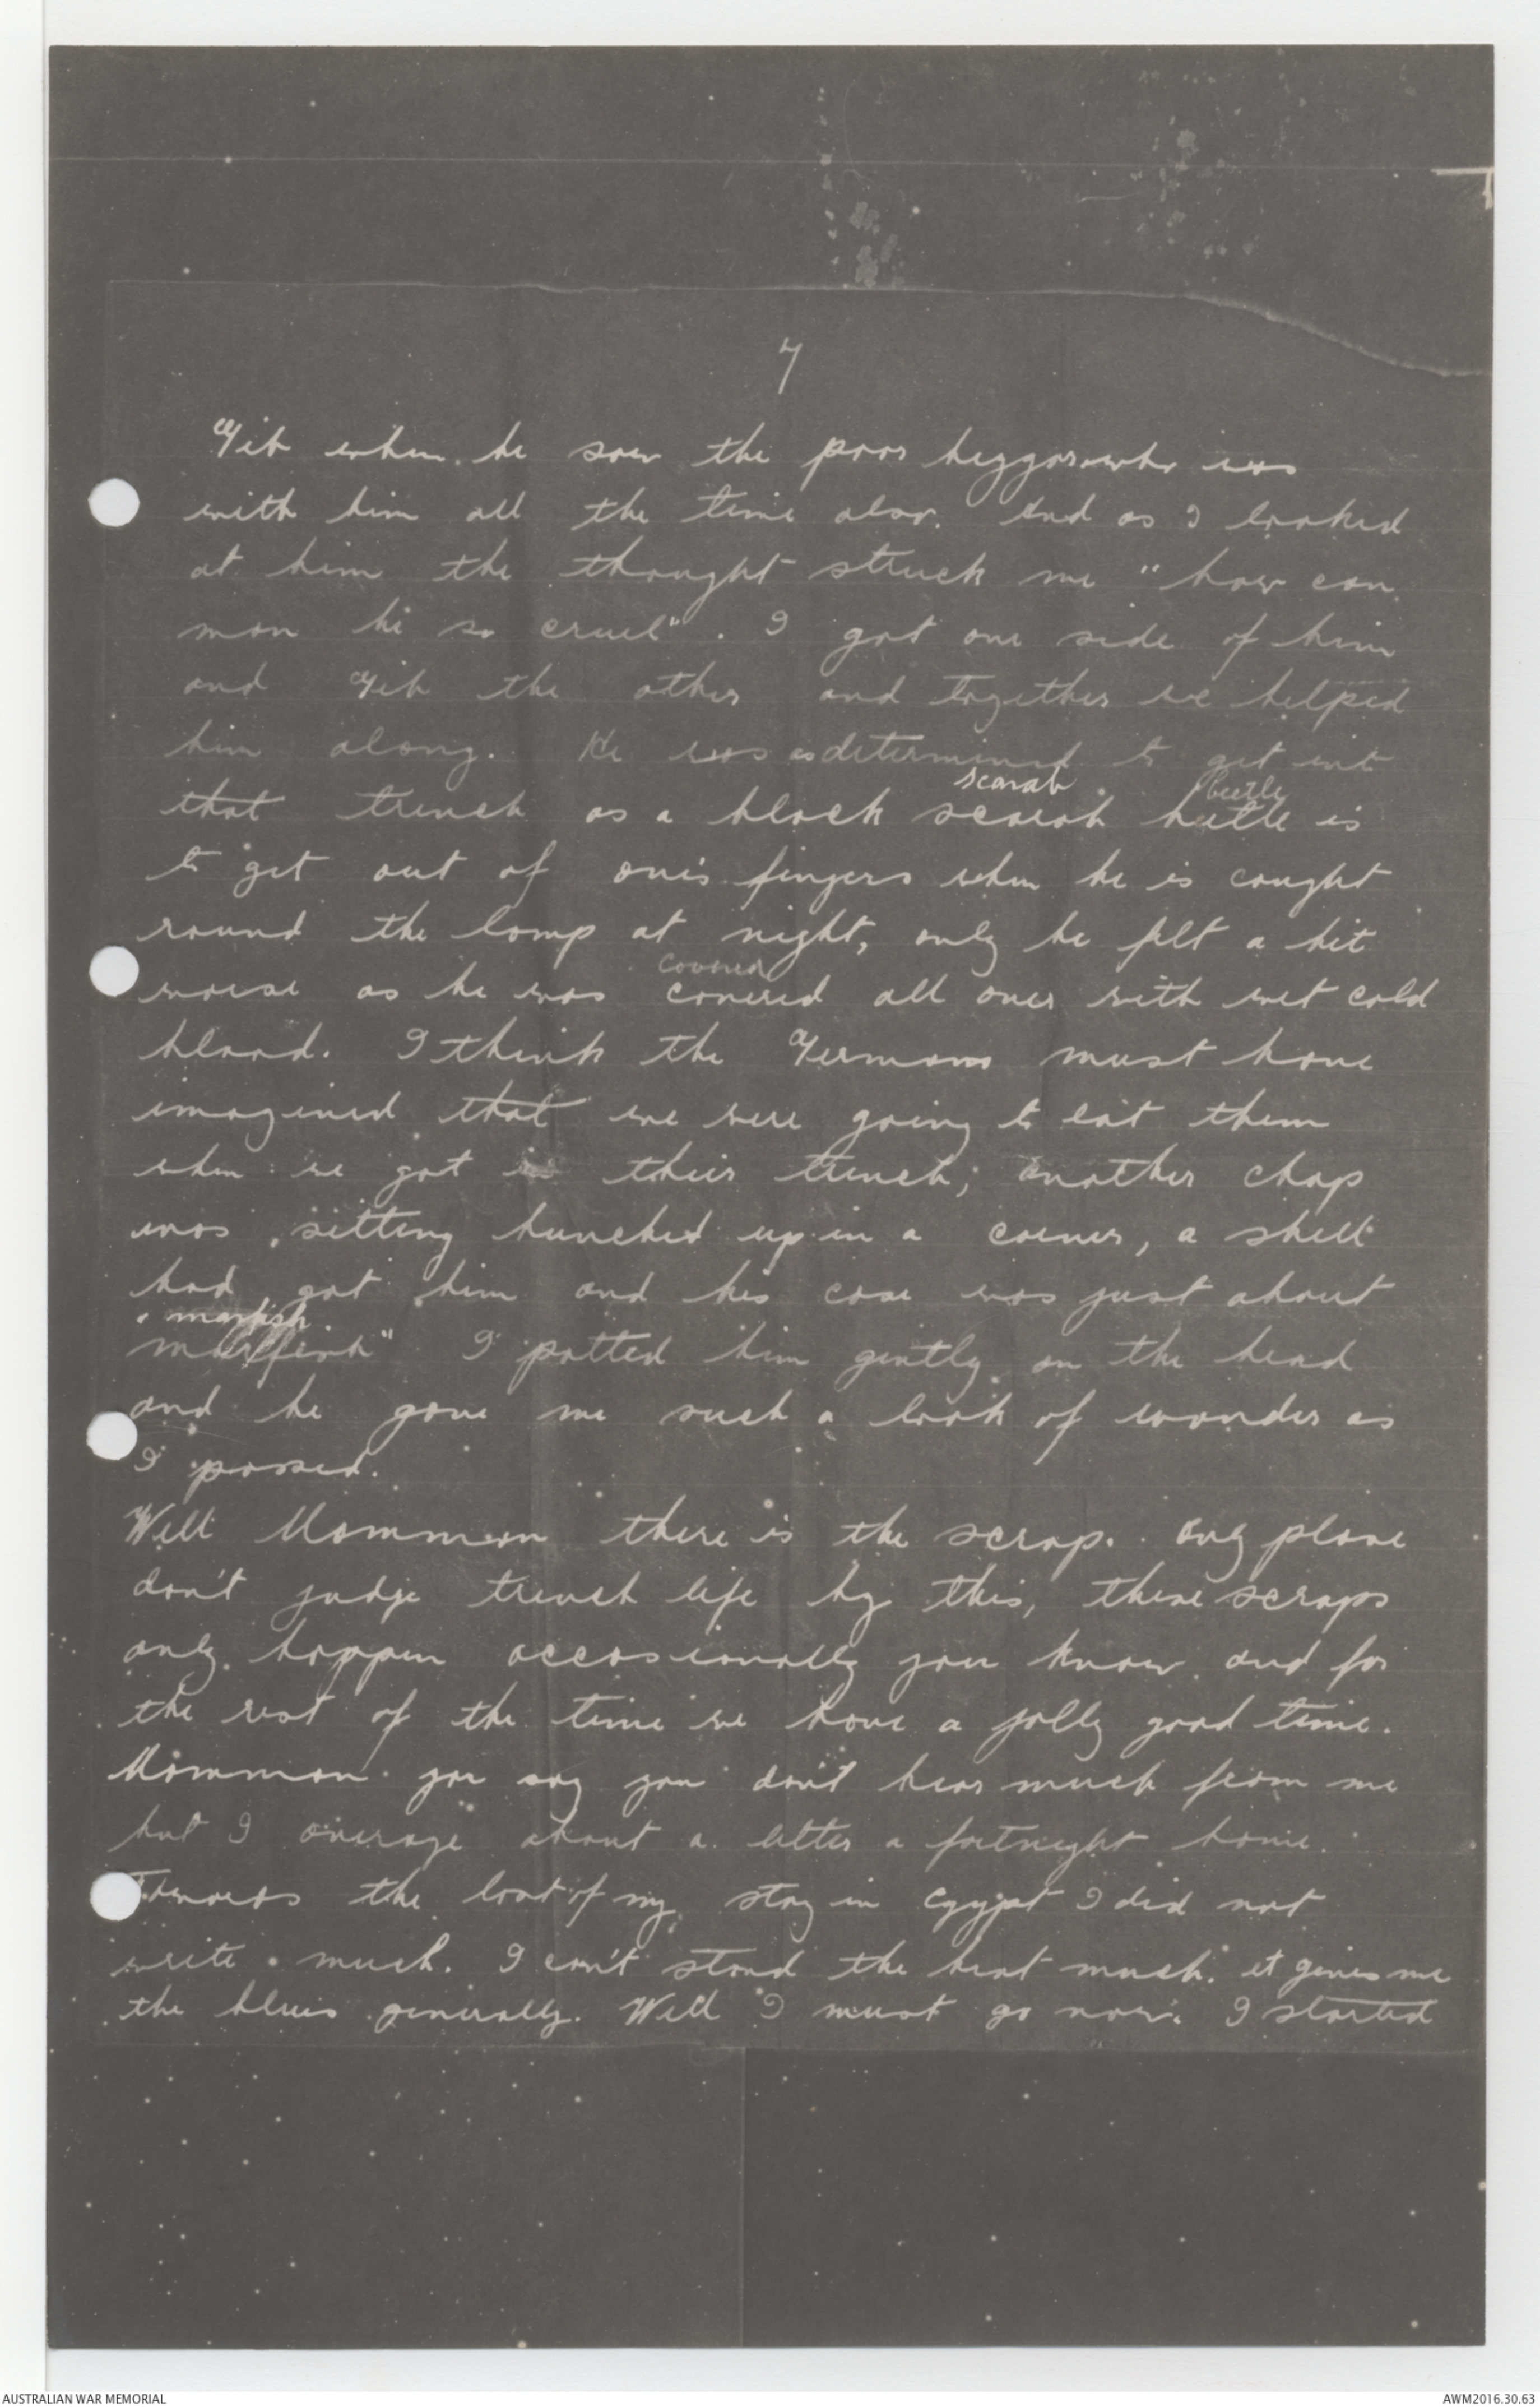 7
Gib when he saw the poor beggar who was
with him all the time also. And as I looked
at him the thought struck me "how can
man be so cruel". I got one side of him
and Gib the other and together we helped
him along. He was as determined to get into
scarab beetle
that trench as a black scarab beetle is
to get out of one's fingers when he is caught
round the lamp at night, only he felt a bit
covered
worse as he was covered all over with wet cold
blood. I think the Germans must have
imagined that we were going to eat them
when we got in their trench; another chap
was sitting hunched up in a corner, a shell
had got him and his case was just about
" mafish
" I patted him gently on the head
and he gave me such a look of wonder as
I passed.
Well Mamman there is the scrap. Only please
don't judge trench life by this, these scraps
only happen occassionally you know and for
the rest of the time we have a jolly good time.
Mamman you say you don't hear much from me
but I average about a letter a fortnight home.
Towards the last of my stay in Egypt I did not
write much. I can't stand the heat much. it gives me
the blues generally. Well I must go now. I started
AUSTRALIAN WAR MEMORIAL
AWM2016.30.63